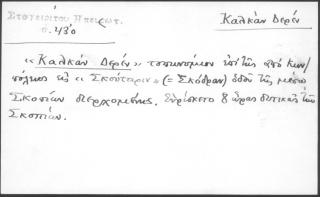 Στουγιρίτου Ἠπειρωτ.
σ. 430
Καλκὰν Δερέν
«Καλκὰν Δερέν» τοπωνύμιον ἐπὶ τῆς ἀπὸ Κων/
πόλεως εἰς «Σκούταριν» (= Σκόδραν) ὁδοῦ τῆς μέσῳ
Σκοπίων διερχομένης. Εὑρίσκετο 8 ὥρας δυτικῶς τῶν
Σκοπίων.